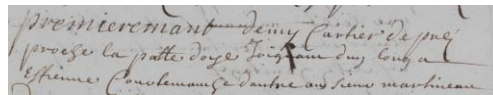 premieremant demy Cartier de pré
proche la patte doye Joignant dun long a
Estienne Courtemanche dautre au sieur martineau